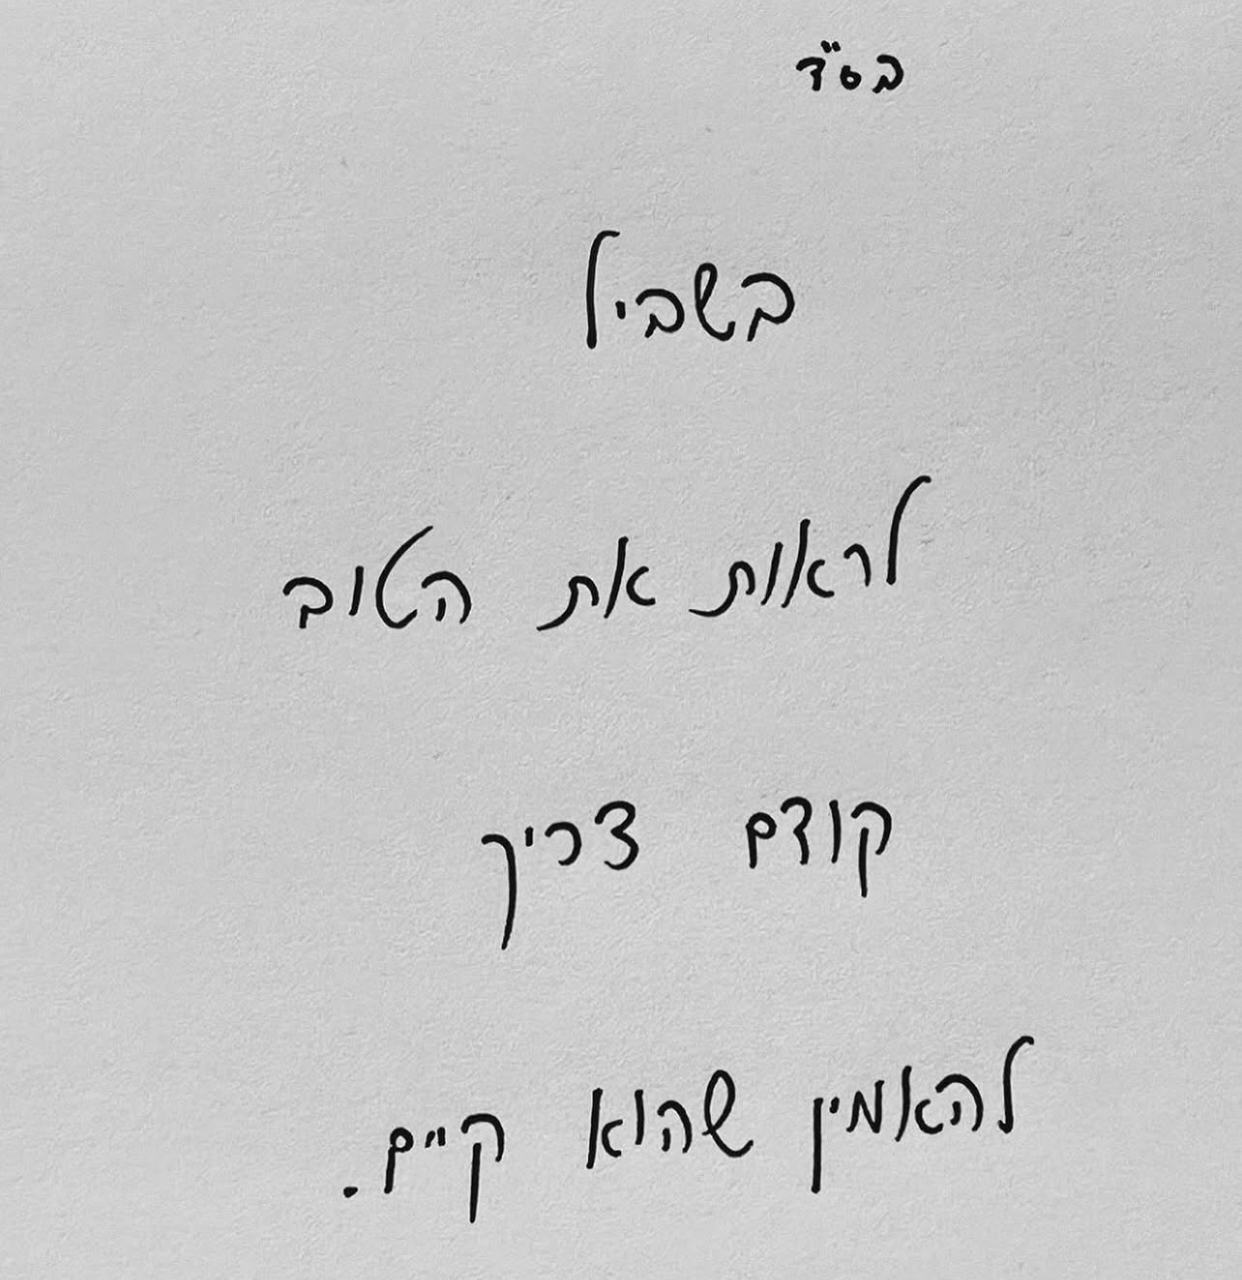 בס"ד
בשביל
לראות את הטוב
קודם צריך
להאמין שהוא קיים.